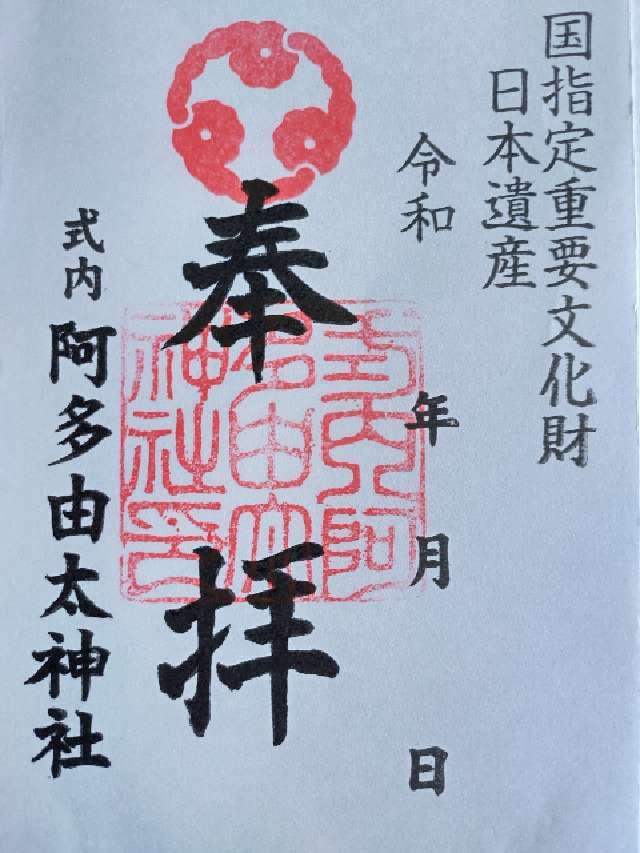 国指定重要文化財
日本遺産
令和 年 月 日
奉拝
式内阿多由太神社
式内阿多由太神社印